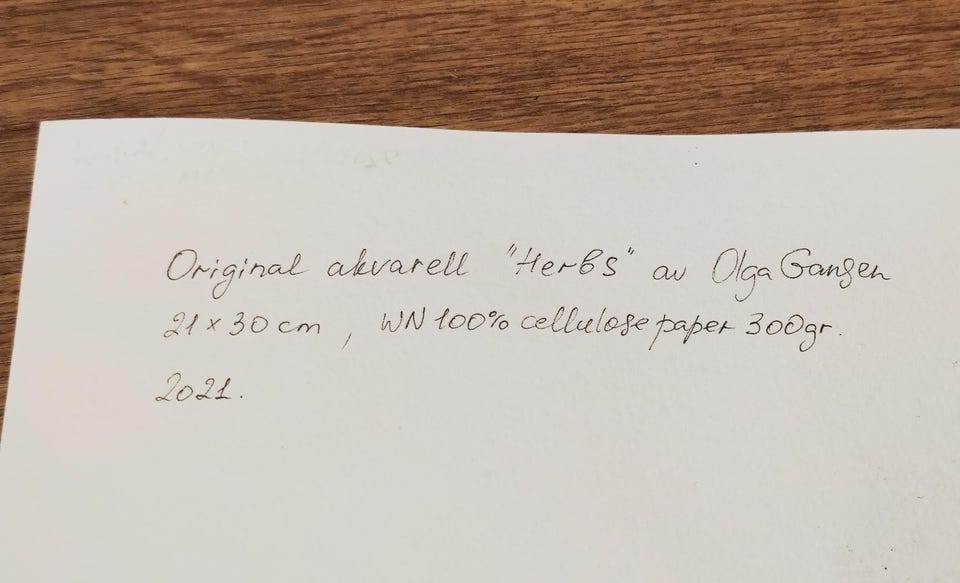 Original akvarell "Herbs" av Olga Gansen
21 x 30 cm , WN 100% cellulose paper 300gr.
2021.